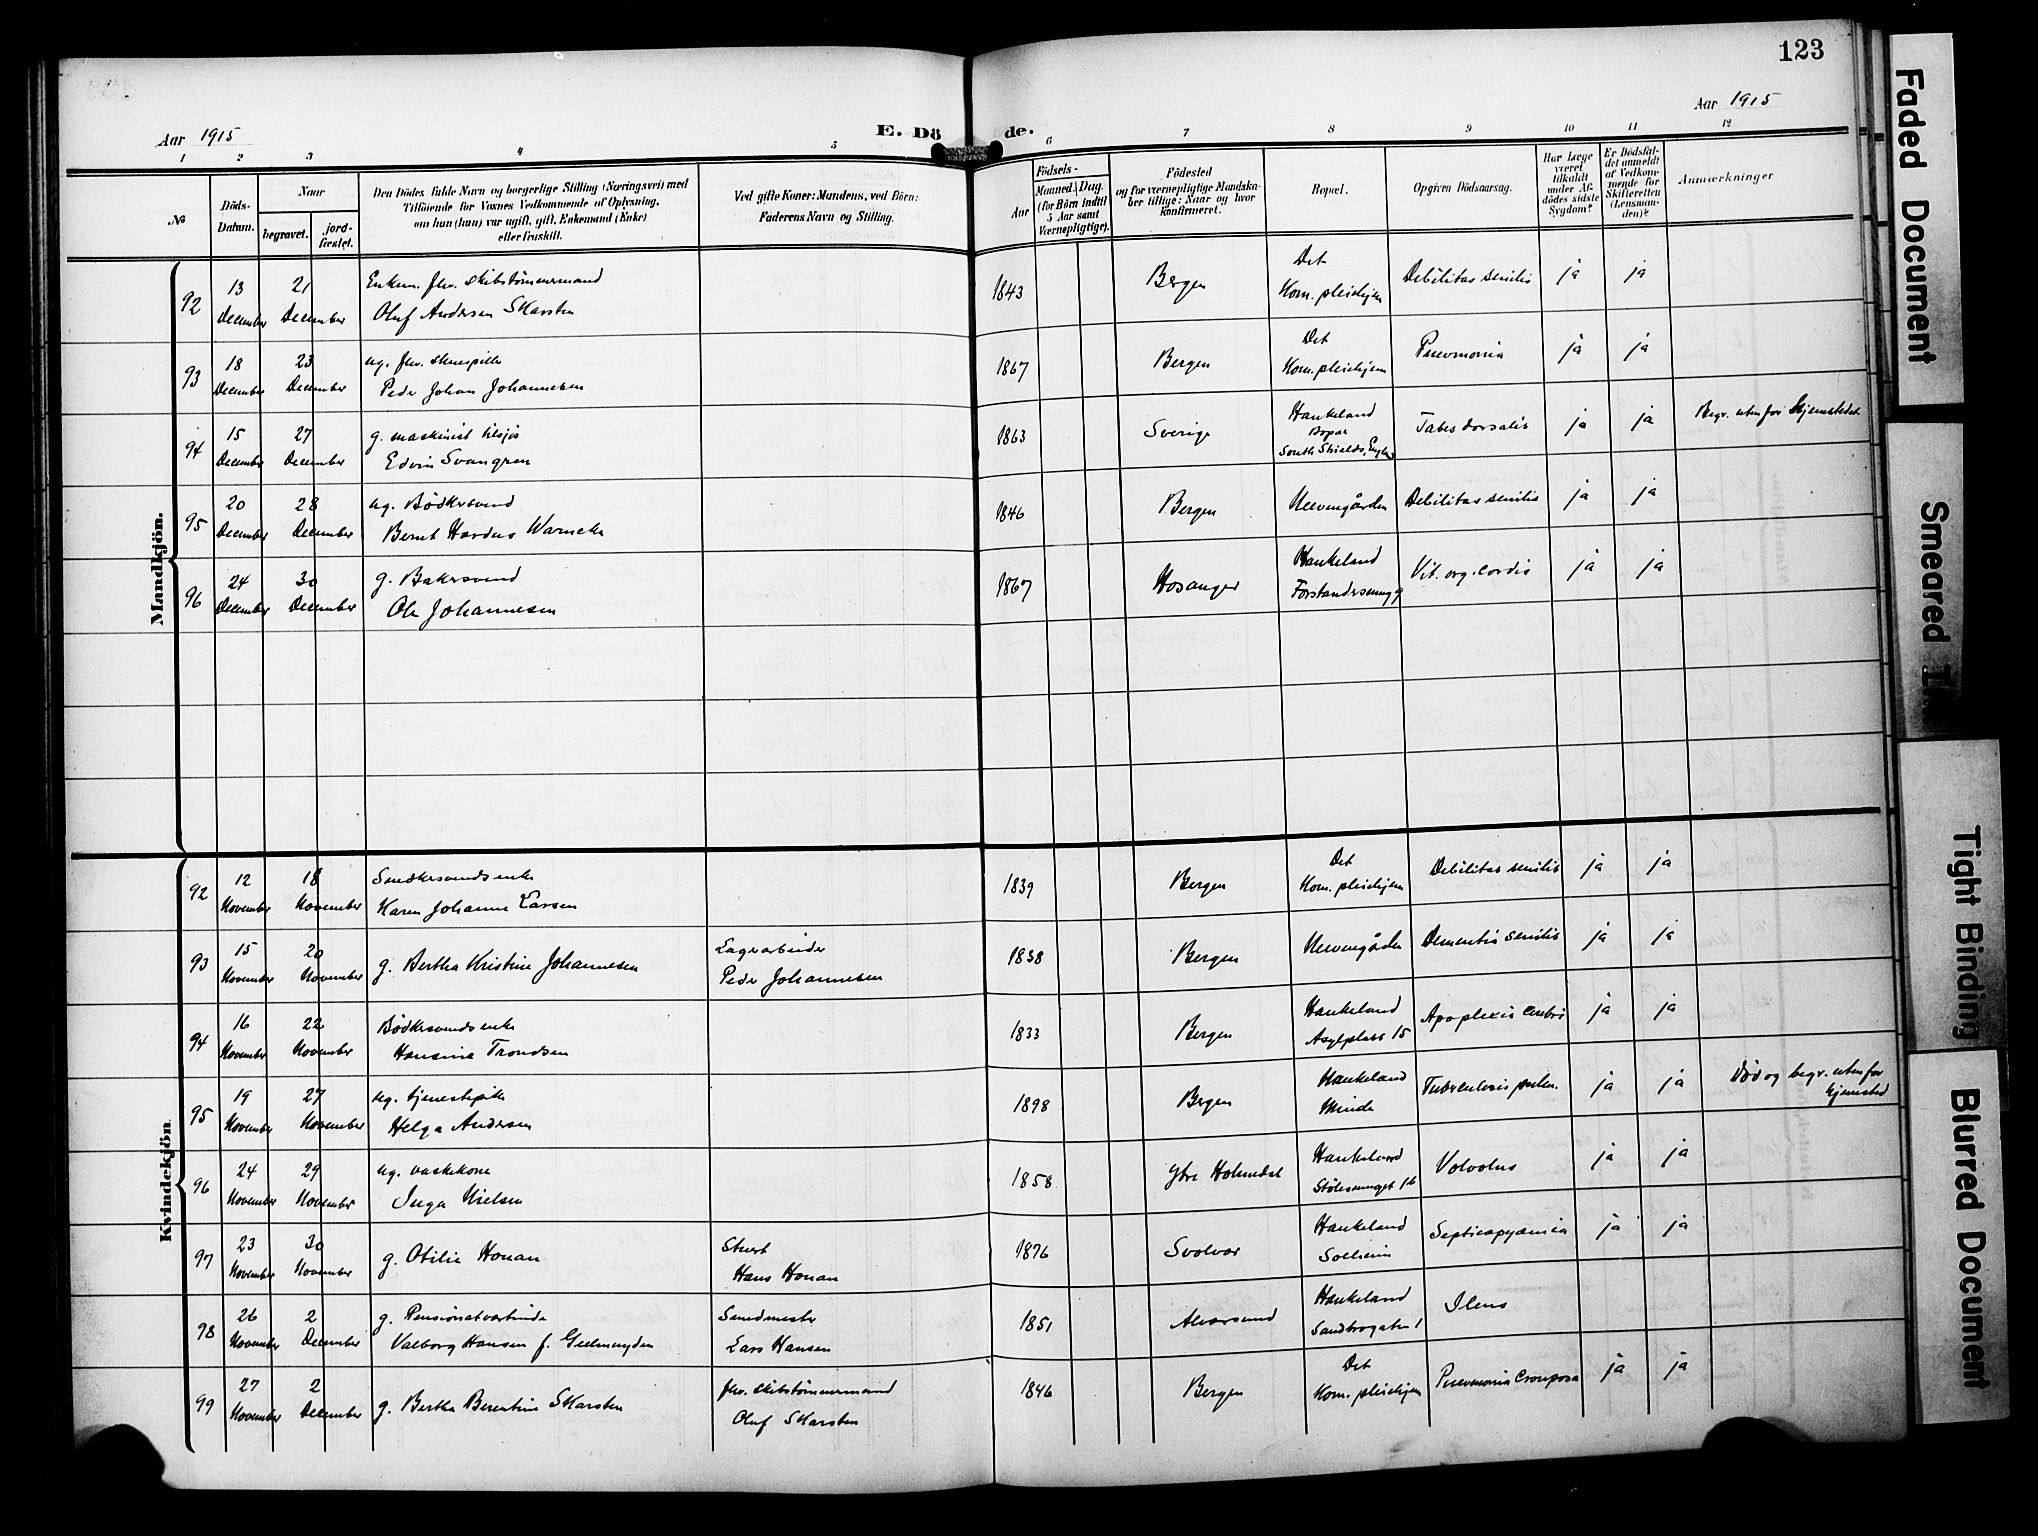 123
Aar 1915
E. Dö de.
Aar 1915
1 2 3 4 5 6 7 8 9 10 11 12
No
Döds-Datum.
Naar
begravet. jord-fæstet.
Den Dödes fulde Navn og borgerlige Stilling (Næringsvei) med
Tilföiende for Voxnes Vedkommende af Oplysning,
om hun (hun) var ugift, gift, Enkemand (Enke)
eller fraskilt.
Ved gifte Koner: Mandens, ved Börn:
Faderens Navn og Stilling.
Födsels-
Aar Maaned. Dag.
(for Börn indtil
5 Aar samt
Værnepligtige).
Födested
og for værnepligtige Mandska-
ber tillige: Naar og hvor
konfirmeret.
Bopæl.
Opgiven Dödsaarsag.
Har Læge
været
tilkaldt
under Af-
dödes sidste
Sygdom?
Er Dödsfal-
det anmeldt
af Vedkom-
mende for
Skifteretten
(Lensman-
den)?
Anmærkninger
Mandkjön.
92 13 December 21 December Enkem. fhv. skibstømmermand
Oluf Andersen Skarsten 1843 Bergen Det Kom. pleiehjem Debilitas senilis ja ja
93 18 December 23 December ug. fhv. skuespiller
Peder Johan Johannesen 1867 Bergen Det Kom. pleiehjem Pneumonia ja ja
94 15 December 27 December g. maskinist tilsjøs
Edvin Svangren 1863 Sverige Haukeland Bopæl South Shields, Engl. Tabes dorsalis ja ja Begr. utenfor hjemstedet
95 20 December 28 December ug. Bødkersvend
Bernt Hardus Warncke 1846 Bergen Neevengården Debilitas senilis ja ja
96 24 December 30 December g. Bakersvend
Ole Johannesen 1867 Hosanger Haukeland Forstandersmug 9 Vit. org. cordis ja ja
Kvindekjön.
92 12 November 18 November Smedkersvends enke
Karen Johanne Larsen 1839 Bergen Det Kom. pleiehjem Debilitas senilis ja ja
93 15 November 20 November g. Bertha Kristine Johannesen Lagerarbeider
Peder Johannesen 1838 Bergen Neevengården Dementia senilis ja ja
94 16 November 22 November Bødkersvends enke
Hansine Trondsen 1833 Bergen Haukeland Asylplass 15 Apoplexia cerebri ja ja
95 19 November 27 November ug. tjenestepike
Helga Andersen 1898 Bergen Haukeland Minde Tuberculosis pulm. ja ja Død og begr. utenfor hjemsted
96 24 November 29 November ug. vaskekone
Inga Nielsen 1858 Ytre Holmedal Haukeland Stølesmuget 16 Volvolus ja ja
97 23 November 30 November g. Otilie Honan Stuert
Hans Honan 1876 Svolvær Haukeland Solheim Septicopyæmia ja ja
98 26 November 2 December g. Pensionatvertinde
Valborg Hansen f. Geelmuyden Smedmester
Lars Hansen 1851 Alversund Haukeland Sandbrogaten 1 Ileus
99 27 November 2 December g. Bertha Berentine Skarsten fhv. skibstømmermand
Oluf Skarsten 1846 Bergen Det Kom. pleiehjem Pneumonia Crouposa ja ja
Faded Document
Smeared
Tight Binding
Blurred Document